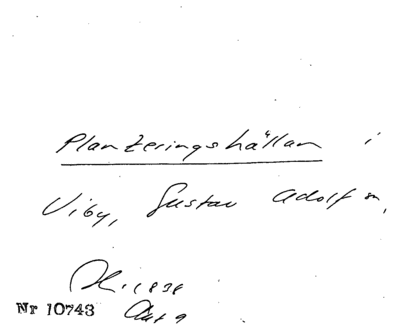 Planteringshällan i
Viby, Gustav Adolf sn,
1838
Nr 10743